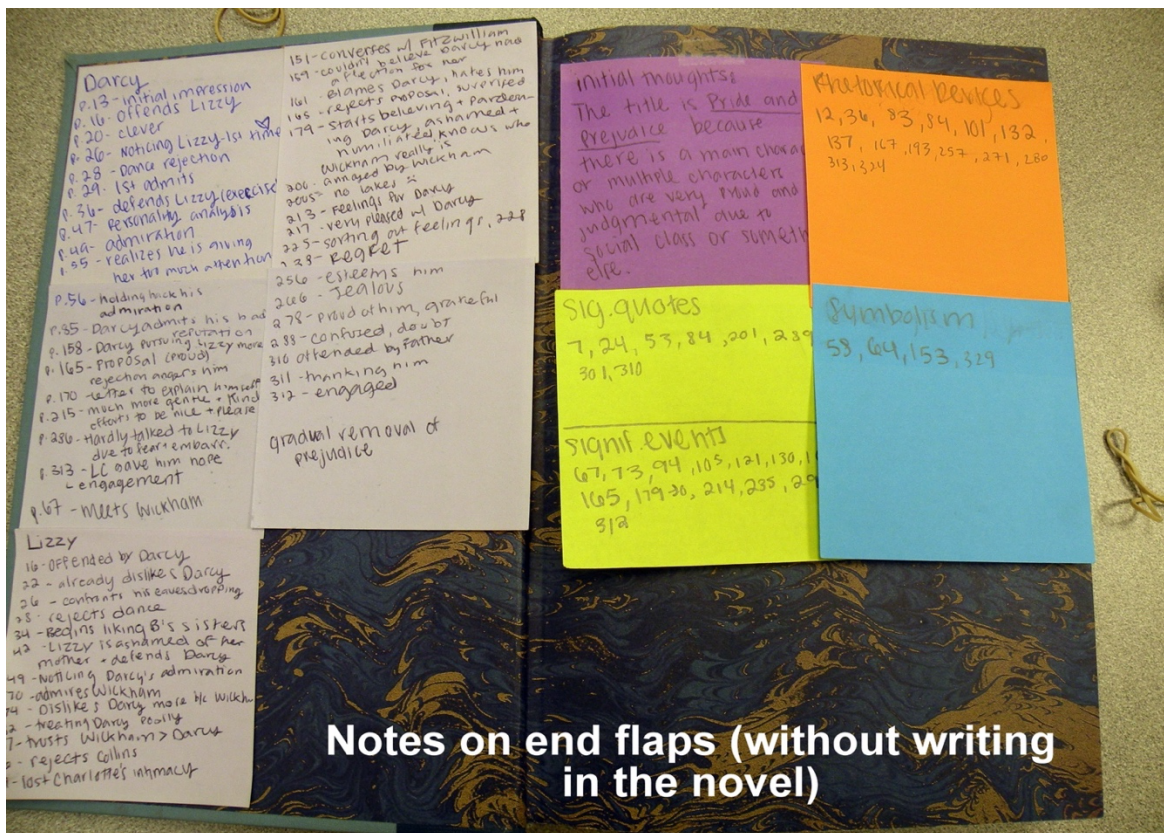 Darcy
p.13 - initial impression
p.16 - offends Lizzy
p.20 - clever
p.26 - Noticing Lizzy 1st time
p.28 - Dance rejection
p.29 - 1st admits
p.36 - defends Lizzy (exercise
p.47 - Personality analysis
p.49 - admiration
p.55 - realizes he is giving
her too much attention
p.56 - holding back his
admiration
p.85 - Darcy admits his bad
reputation
p.158 - Darcy pursuing Lizzy more
p.165 - Proposal (proud)
rejection angers him
p.170 - letter to explain himself
p.215 - much more gentle + kind
efforts to be nice + please
p.286 - Hardly talked to Lizzy
due to fear + embarr.
p.313 - LC gave him hope
engagement
p.67 - meets Wickham
Lizzy
16 - Offended by Darcy
22 - already dislikes Darcy
26 - confronts his eavesdropping
28 - rejects dance
34 - Begins liking B's sisters
42 - Lizzy is ashamed of her
mother + defends Darcy
49 - Noticing Darcy's admiration
70 - admires Wickham
74 - Dislikes Darcy more b/c Wickham
2 - treating Darcy poorly
7 - trusts Wickham > Darcy
- rejects Collins
- lost Charlotte's intimacy
151 - converses w/ Fitzwilliam
159 - couldn't believe Darcy has
affection for her
161 Blames Darcy, hates him
165 - rejects proposal, surprised
179 - starts believing +
ing Darcy, ashamed +
humiliated, knows who
Wickham really is
206 - annoyed by Wickham
- no lakes :(
213 - Feelings for Darcy
217 - very pleased w/ Darcy
225 - sorting out feelings, 228
238 - Regret
256 - esteems him
266 - Jealous
278 - proud of him, grateful
288 - confused, doubt
310 offended by Father
311 - thanking him
312 - engaged
gradual removal of
prejudice
initial thoughts:
The title is Pride and
Prejudice because
there is a main charac
or multiple characters
who are very proud and
judgmental due to
social class or someth
else.
Rhetorical Devices
12, 36, 83, 84, 101, 132,
137, 167, 193, 257, 271, 280
313, 324
Sig. quotes
7, 24, 53, 84, 201, 239
301, 310
Signif. events
67, 73, 94, 105, 121, 130, 1
165, 179-80, 214, 235, 29
312
Symbolism
53, 64, 153, 329
Notes on end flaps (without writing
in the novel)